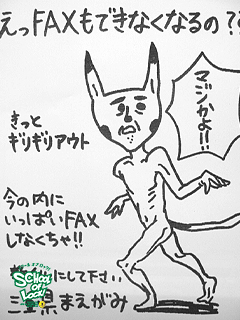 えっFAXもできなくなるの??
マジかよ!!
きっと
ギリギリアウト
今の内に
いっぱいFAX
しなくちゃ!!
にして下さい
SCHOOL OF LOCK!
三重県まえがみ